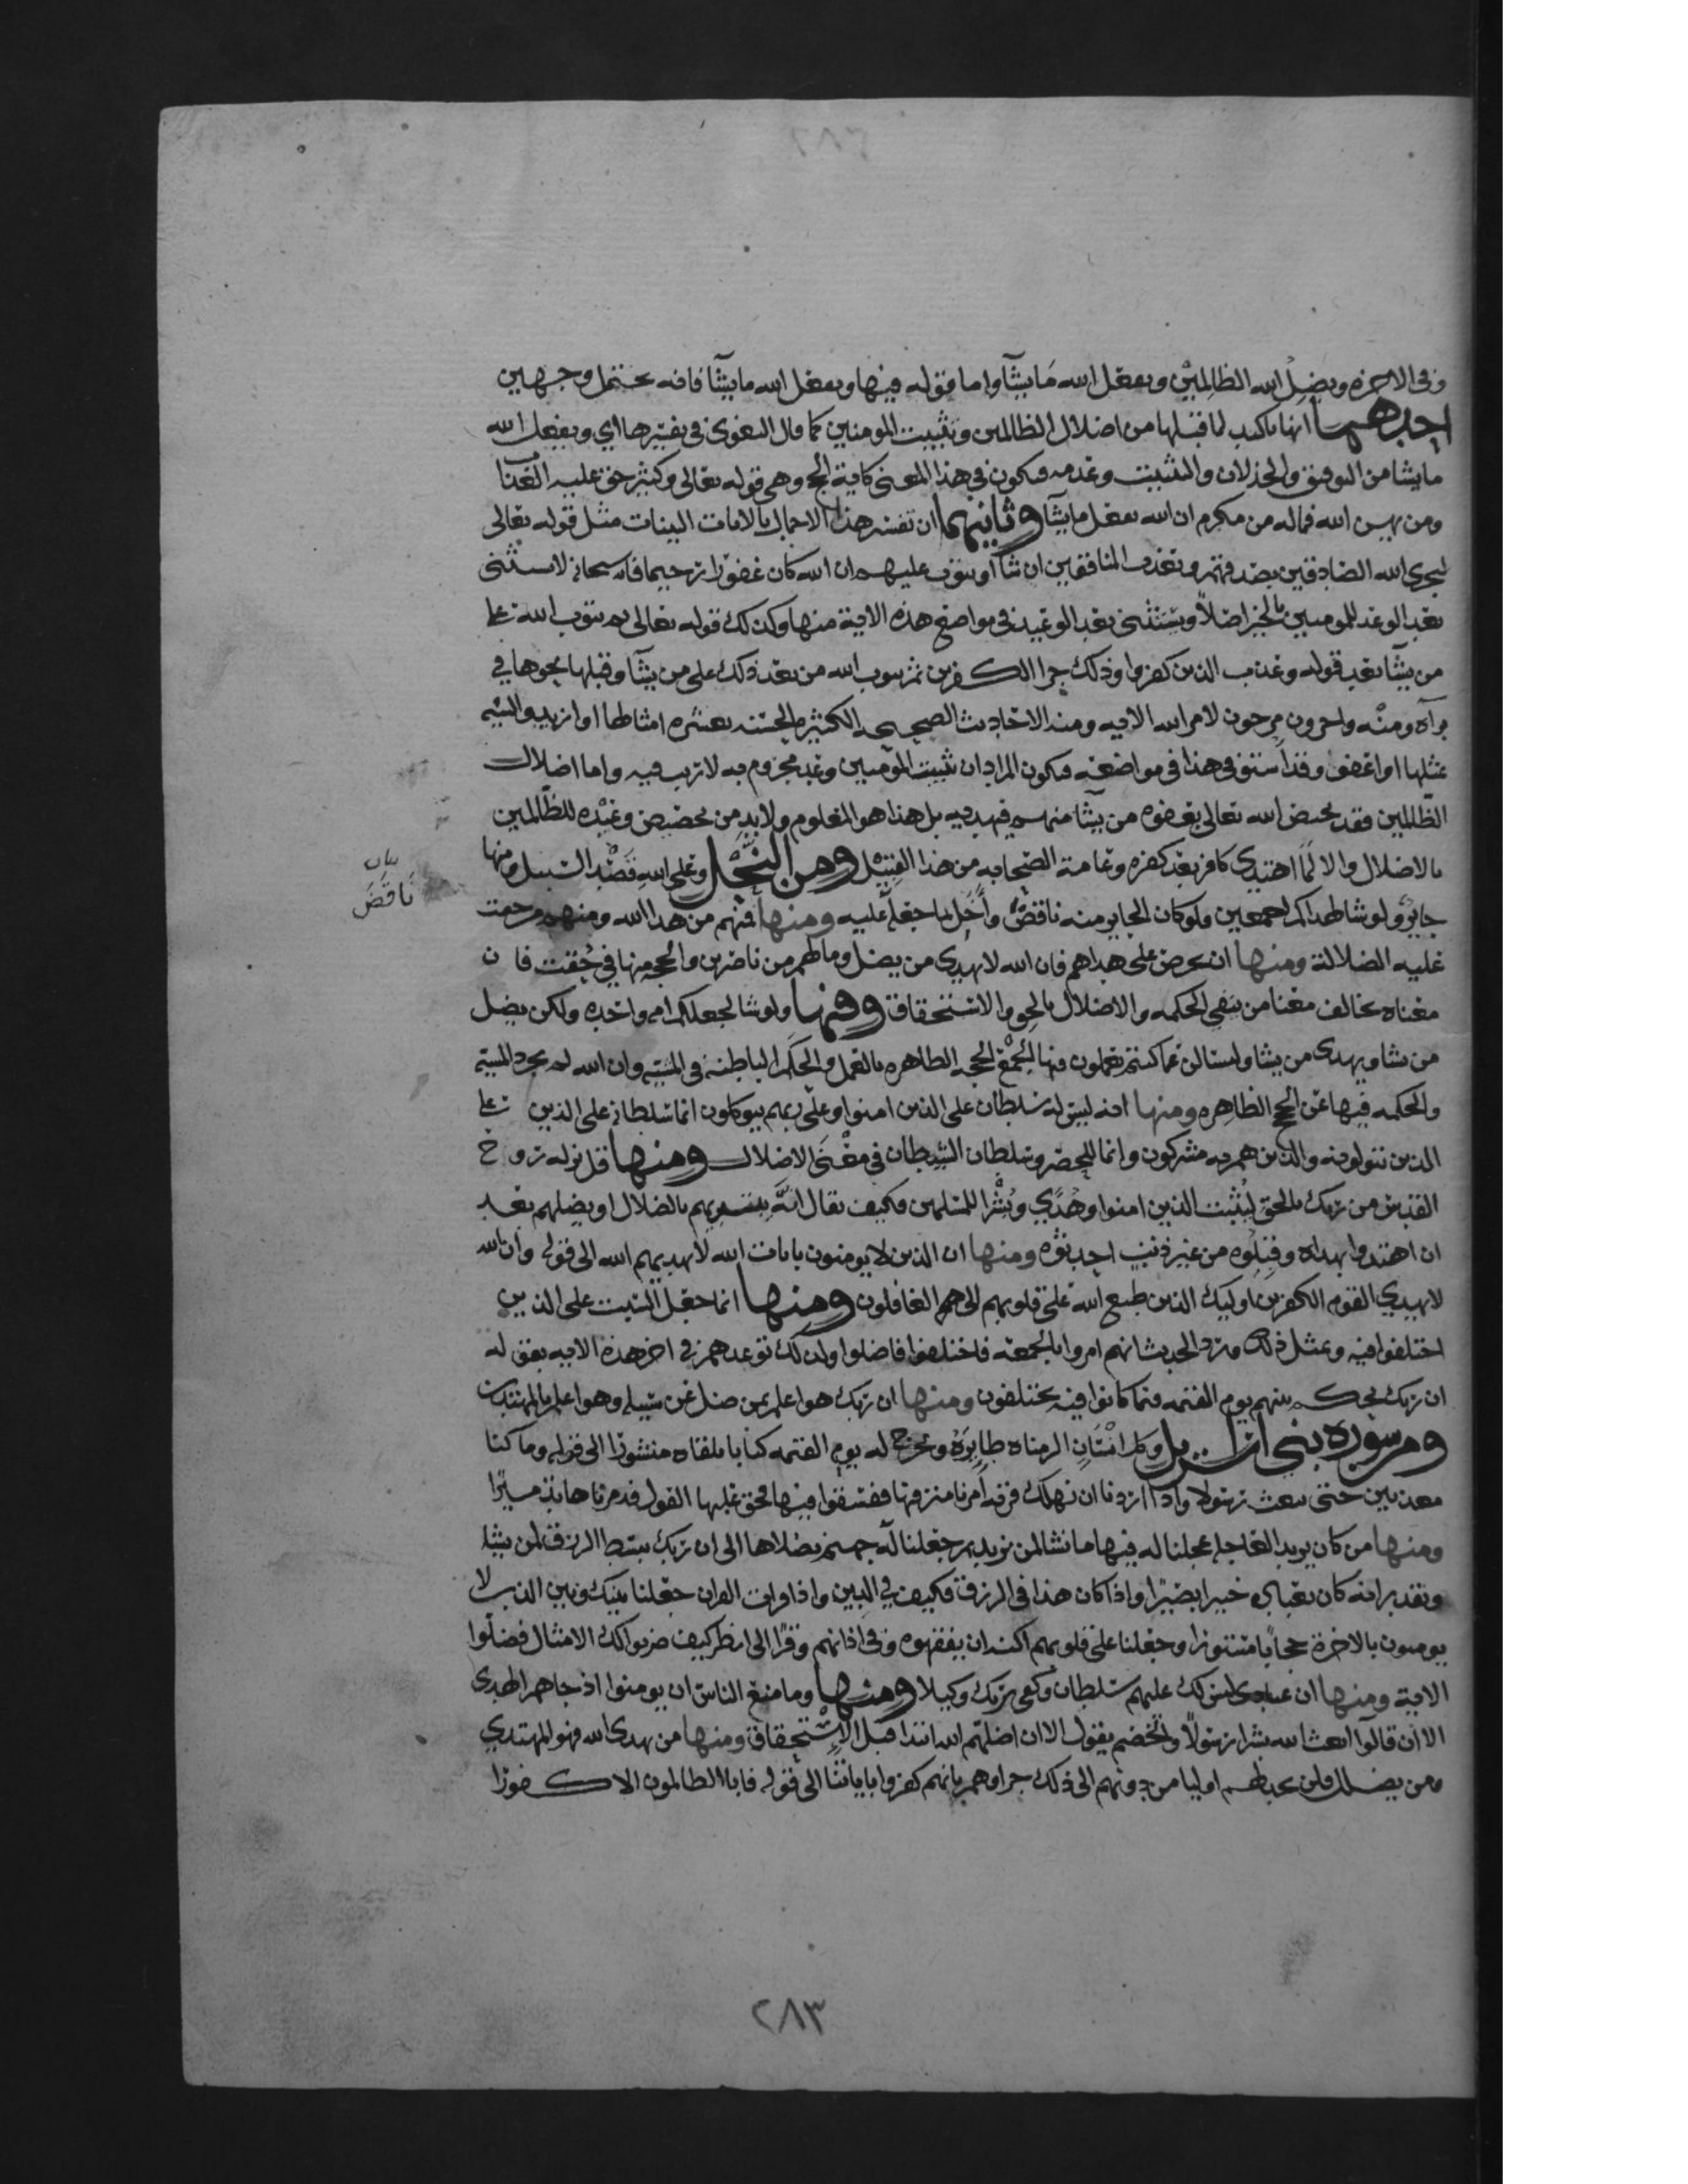 وفي الاخرة ويضل الله الظالمين ويفعل الله ما يشآ واما قوله فيها ويفعل الله ما يشآ فانه يحتمل وجهين
احدهما انها تاكيد لما قبلها من اضلال الظالمين وتثبيت المومنين كما قال البغوي في تفسيرها اي ويفعل الله
ما يشا من التوفيق والخذلان والتثبيت وعدمه فيكون في هذا المعنى كاية الحج وهي قوله تعالى وكثير حق عليه العذاب
ومن يهن الله فماله من مكرم ان الله يفعل ما يشآ وثانيهما ان تفسر هذا الاجمال بالايات البينات مثل قوله تعالى
ليجزي الله الصادقين بصدقهم ويعذب المنافقين ان شآ او يتوب عليهم ان الله كان غفورا رحيما فانه سبحانه لا يستثني
بعد الوعد للمومنين بالخير اصلاً ويستثني بعد الوعيد في مواضع هذه الاية منها وكذلك قوله تعالى ثم يتوب الله على
من يشآ بعد قوله وعذب الذين كفروا وذلك جزا الكفرين ثم يتوب الله من بعد ذلك على من يشآ وقبلها نحوها في
برآه ومنه واخرون مرجون لامر الله الايه ومنه الاحاديث الصحيحه الكثيره الحسنه بعشره امثالها او ازيد والسيه
بمثلها او اعفو وقد استوفي هذا في مواضعه فيكون المراد ان تثبيت المومنين وعد مجزوم به لا ريب فيه واما اضلال
الظالمين فقد يخص الله تعالى بعفوه من يشآ منهم فيهديه بل هذا هو المعلوم ولا بد من تخصيص وعيده للظالمين
بالاضلال والا لما اهتدى كافر بعد كفره وعامة الصحابه من هذا القبيل ومن النحل وعلى الله قصد السبيل ومنها
جاير ولو شا لهداكم اجمعين ولو كان الجاير منه ناقض وأخل بما جعله عليه ومنها فمنهم من هدا الله ومنهم من حقت
بيان
ناقض
عليه الضلالة ومنها ان تحرص على هداهم فان الله لا يهدي من يضل وما لهم من ناصرين والحجه منها في حقت فان
معناه يخالف معنا من نفى الحكمه والاضلال بالحق والاستحقاق ومنها ولو شا لجعلكم امه واحده ولكن يضل
من يشا ويهدي من يشا ولتسالن عما كنتم تعملون فيها الجمع الحجه الظاهره بالعمل والحكم الباطنه في المشيه وان الله لم يجرد المشيه
والحكمه فيها عن الحجج الظاهره ومنها انه ليس له سلطان على الذين امنوا وعلى ربهم يتوكلون انما سلطانه على الذين على
الذين يتولونه والذين هم به مشركون وانما للحصر وسلطان الشيطان في معنى الاضلال ومنها قل نزله روح
القدس من ربك بالحق ليثبت الذين امنوا وهدًى وبشرا للمسلمين فكيف يقال انه يبتديهم بالضلال او يضلهم بعد
ان اهتدوا بهداه وقبلوه من غير ذنب احدثوه ومنها ان الذين لا يومنون بايات الله لا يهديهم الله الى قوله وان الله
لا يهدي القوم الكفرين اوليك الذين طبع الله على قلوبهم الى هم الغافلون ومنها انما جعل السبت على الذين
اختلفوا فيه وبمثل ذلك ورد الحديث انهم امروا بالجمعه فاختلفوا فاضلوا ولذلك توعدهم في اخر هذه الايه بقوله
ان ربك ليحكم بينهم يوم القيمه فيما كانوا فيه يختلفون ومنها ان ربك هو اعلم بمن ضل عن سبيله وهو اعلم بالمهتدين
ومن سورة بني اسرايل وكل انسان الزمناه طايره ونخرج له يوم القيمه كتابا يلقاه منشورا الى قوله وما كنا
معذبين حتى نبعث رسولا واذا اردنا ان نهلك قرية أمرنا مترفيها ففسقوا فيها فحق عليها القول فدمرناها تدميرًا
ومنها من كان يريد العاجله عجلنا له فيها ما نشا لمن نريد ثم جعلنا له جهنم يصلاها الى ان ربك يبسط الرزق لمن يشا
ويقدر انه كان بعباده خبيرا بصيرًا واذا كان هذا في الرزق فكيف في الدين واذا قرات القران جعلنا بينك وبين الذين لا
يومنون بالاخرة حجابًا مستورا وجعلنا على قلوبهم اكنة ان يفقهوه وفي اذانهم وقرًا الى انظر كيف ضربوا لك الامثال فضلوا
الاية ومنها ان عبادي ليس لك عليهم سلطان وكفى بربك وكيلا ومنها وما منع الناس ان يومنوا اذ جاهم الهدى
الا أن قالوا ابعث الله بشرا رسولًا والخصم يقول الا ان اضلهم الله ابتدا قبل الاستحقاق ومنها من يهدي الله فهو المهتدي
ومن يضلل فلن تجد لهم اوليا من دونهم الى ذلك جزاوهم بانهم كفروا باياتنا الى قوله فابا الظالمون الا كفورًا
٢٨٣